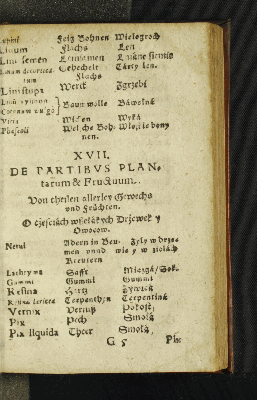 Lupini Feig Bohnen Wielogroch
Linum Flachs Len
Lini semen Leinsamen Lniane siemię
Linum decorticatum Gehechelt Flachs Tarty len.
Linistupa Werck Zgrzebi
Baum wolle Bawełna
Vicia Wicken Wyka
Phaseoli Welsche Bohnen. Włoskie bony
XVII.
DE PARTIBVS PLAN-
tarum & Fructuum.
Von theilen allerley Gewechs
und Früchten.
O częściach wszelákich Drzewek y
Owocow.
Nerui Adern in Beu- Żyły w drze-
men unnd wie y w ziołách
Kreutern
Lachryma Safft Miazgá/Sok.
Gummi Gummi Gummi
Resina Hartz Żywicá
Terpenthin Terpentiná
Vernix Vernitz Pokost
Pix Pech Smołá
Pix liquida Theer Smołá
G 5 Pix